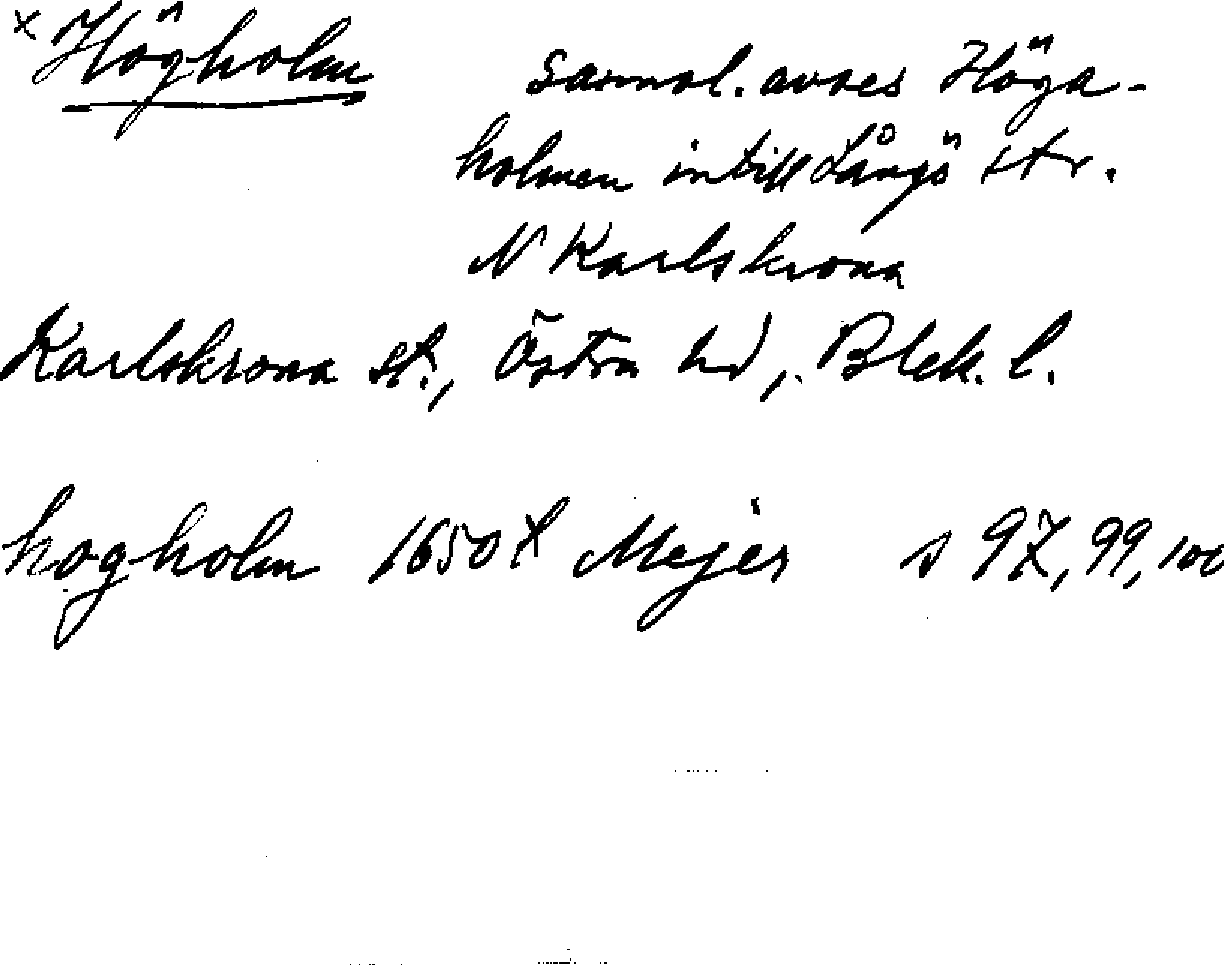 x Högholm
Sannol. avses Höga-
holmen intill Långö str.
N Karlskrona
Karlskrona st., Östra hd, Blek. l.
hogholm 1650 t Mejer s 97, 99, 100